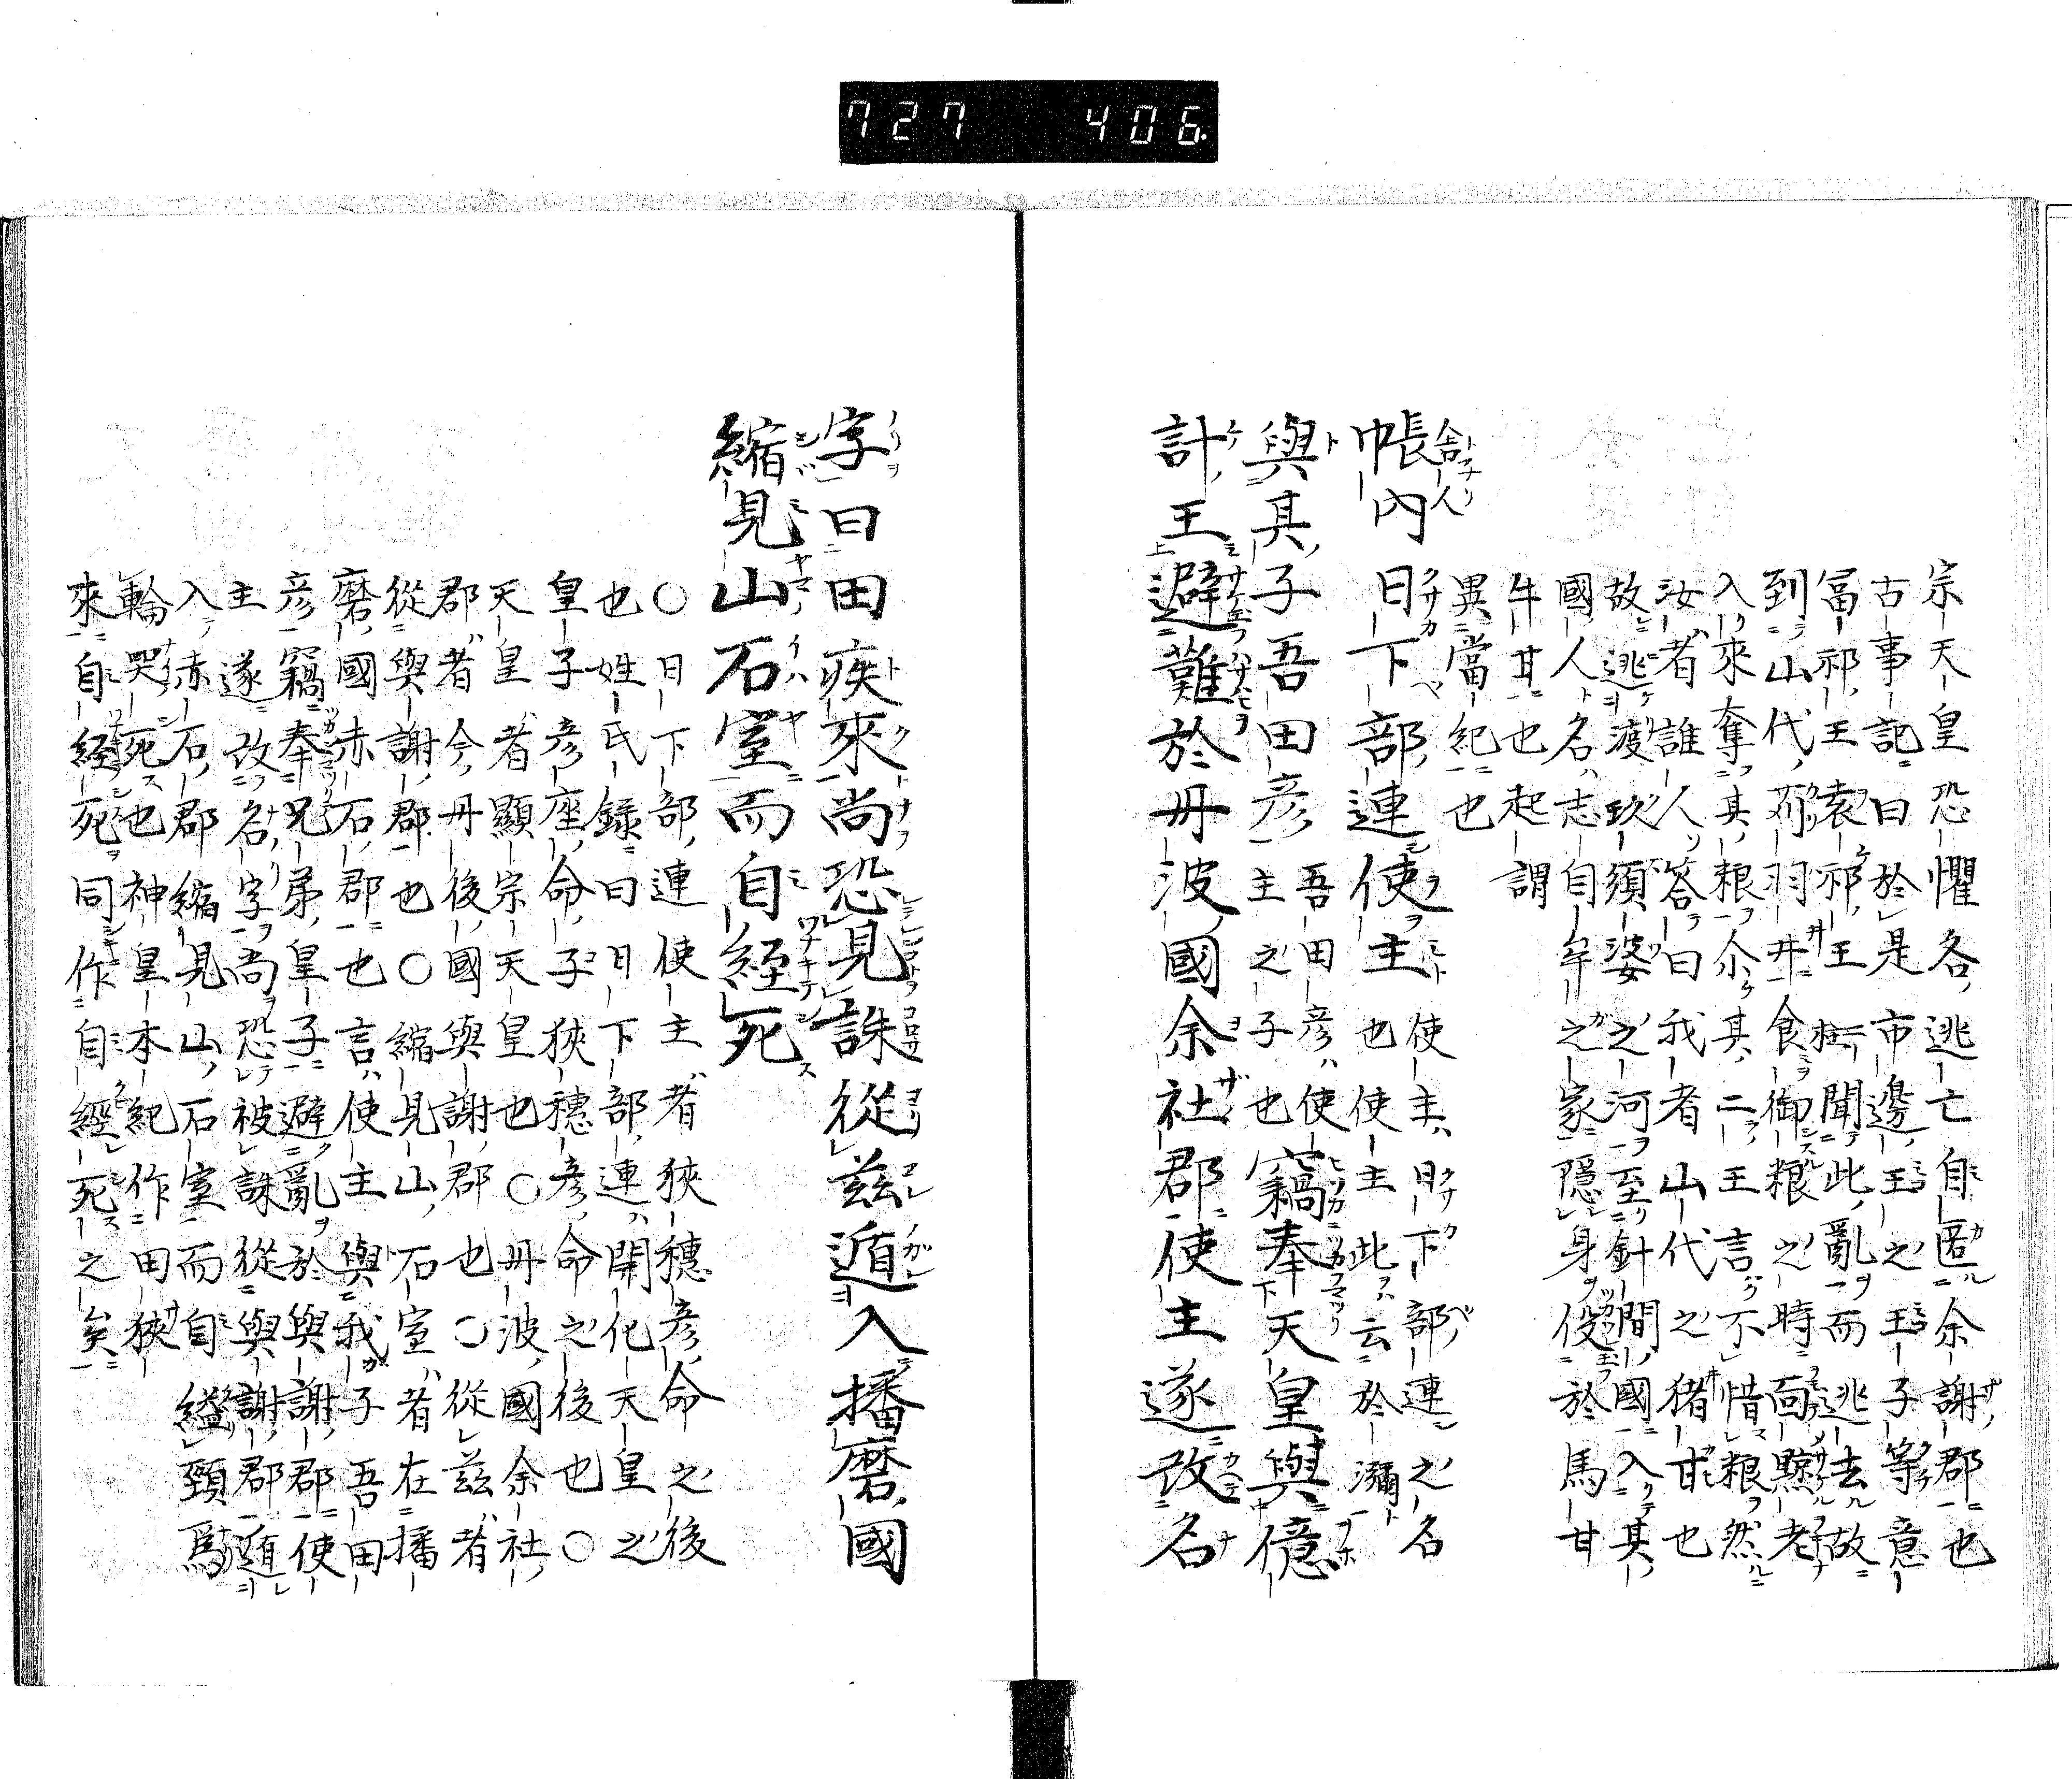 727 406
宗天皇恐懼各逃亡自匿余謝郡也
古事記曰於是市邊王之王子等意
冨祁王袁祁王二柱聞此亂而逃去故
到山代苅羽井食御粮之時面黥老
人來奪其粮尒其二王言不惜粮然
汝者誰人答曰我者山代之猪甘也
故逃渡玖須婆之河至針間國入其
國人名志自牟之家隱身役於馬甘
牛甘也起謂
異當紀也
帳內日下部連使主使主日下部連之名
也使主此云於瀰
與其子吾田彦吾田彦使
主之子也竊奉天皇與億
計王避難於丹波國余社郡使主遂改名
字曰田疾來尚恐見誅從茲遁入播磨國
縮見山石室而自經死
○日下部連使主者狹穗彦命之後
也姓氏録曰日下部連開化天皇之
皇子彦座命子狹穗彦命之後也○
天皇者顯宗天皇也○丹波國余社
郡者今丹後國與謝郡也○從茲者
從與謝郡也○縮見山石室者在播
磨國赤石郡也言使主與我子吾田
彦竊奉兄弟皇子避亂於與謝郡使
主遂改名字尚恐被誅從與謝郡遁
入赤石郡縮見山石室而自縊頸爲
輪哭死也神皇本紀作田狹
來自経死同作自經死之矣